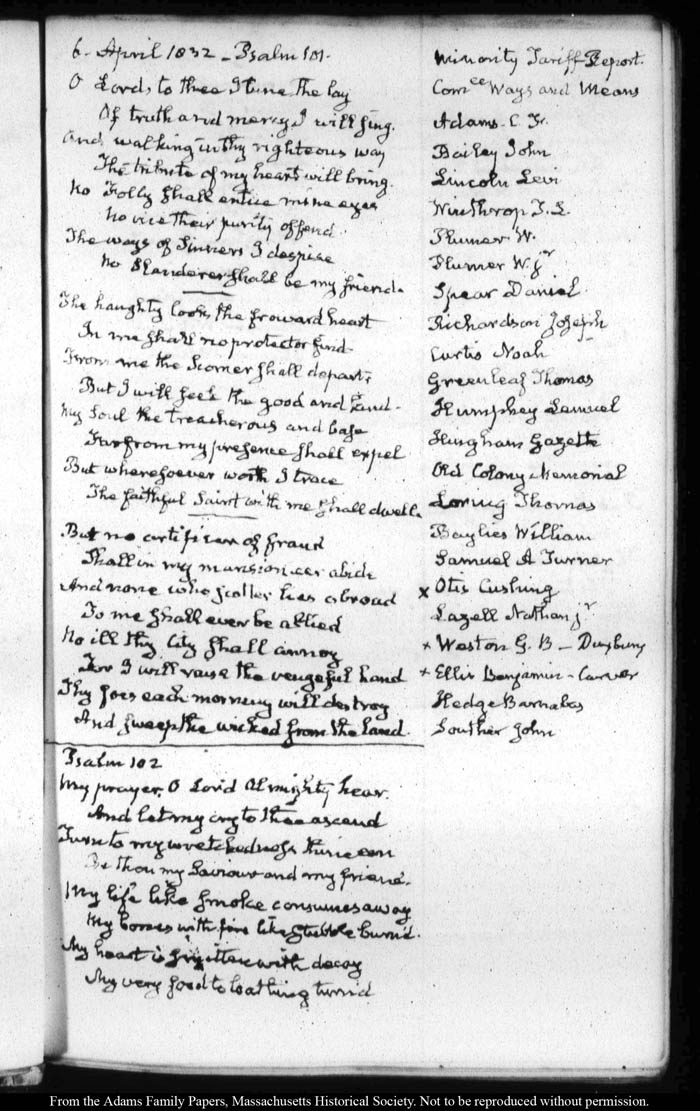 6. April 1832 - Psalm 101.
O Lord, to thee I tune the lay
Of truth and mercy I will sing.
And walking in thy righteous way
The tribute of my heart will bring.
No Folly shall entice mine eyes
No vice their purity offend.
The ways of Sinners I despise
No Slanderer shall be my friend.
The haughty look, the froward heart
In me shall no protector find
From me the Scorner shall depart;
But I will seek the good and kind.
My Soul the treacherous and base
Far from my presence shall expel
But wheresoever worth I trace
The faithful Saint with me shall dwell.
But no artificer of fraud
Shall in my mansion e'er abide
And none who scatter lies abroad
To me shall ever be allied
No ill thy City shall annoy
For I will raise the vengeful hand
Thy foes each morning will destroy
And sweep the wicked from the land.
Psalm 102
My prayer, O Lord Almighty hear.
And let my cry to thee ascend
Turn to my wretchedness thine ear
Be thou my Saviour and my friend.
My life like smoke consumes away
My bones with fire like stubble burn'd.
My heart is smitten with decay
My very food to loathing turn'd
Minority Tariff Report.
Com.ee Ways and Means
Adams. C. F.
Bailey John
Lincoln Levi
Winthrop T. L.
Plumer W.
Plumer W. jr
Spear Daniel
Richardson Joseph
Curtis Noah
Greenleaf Thomas
Humphrey Lemuel
Hingham Gazette
Old Colony Memorial
Loring Thomas
Baylies William
Samuel A Turner
x Otis Cushing
Lazell Nathan jr
x Weston G. B - Duxbury
x Ellis Benjamin - Carver
Hedge Barnabas
Souther John
From the Adams Family Papers, Massachusetts Historical Society. Not to be reproduced without permission.